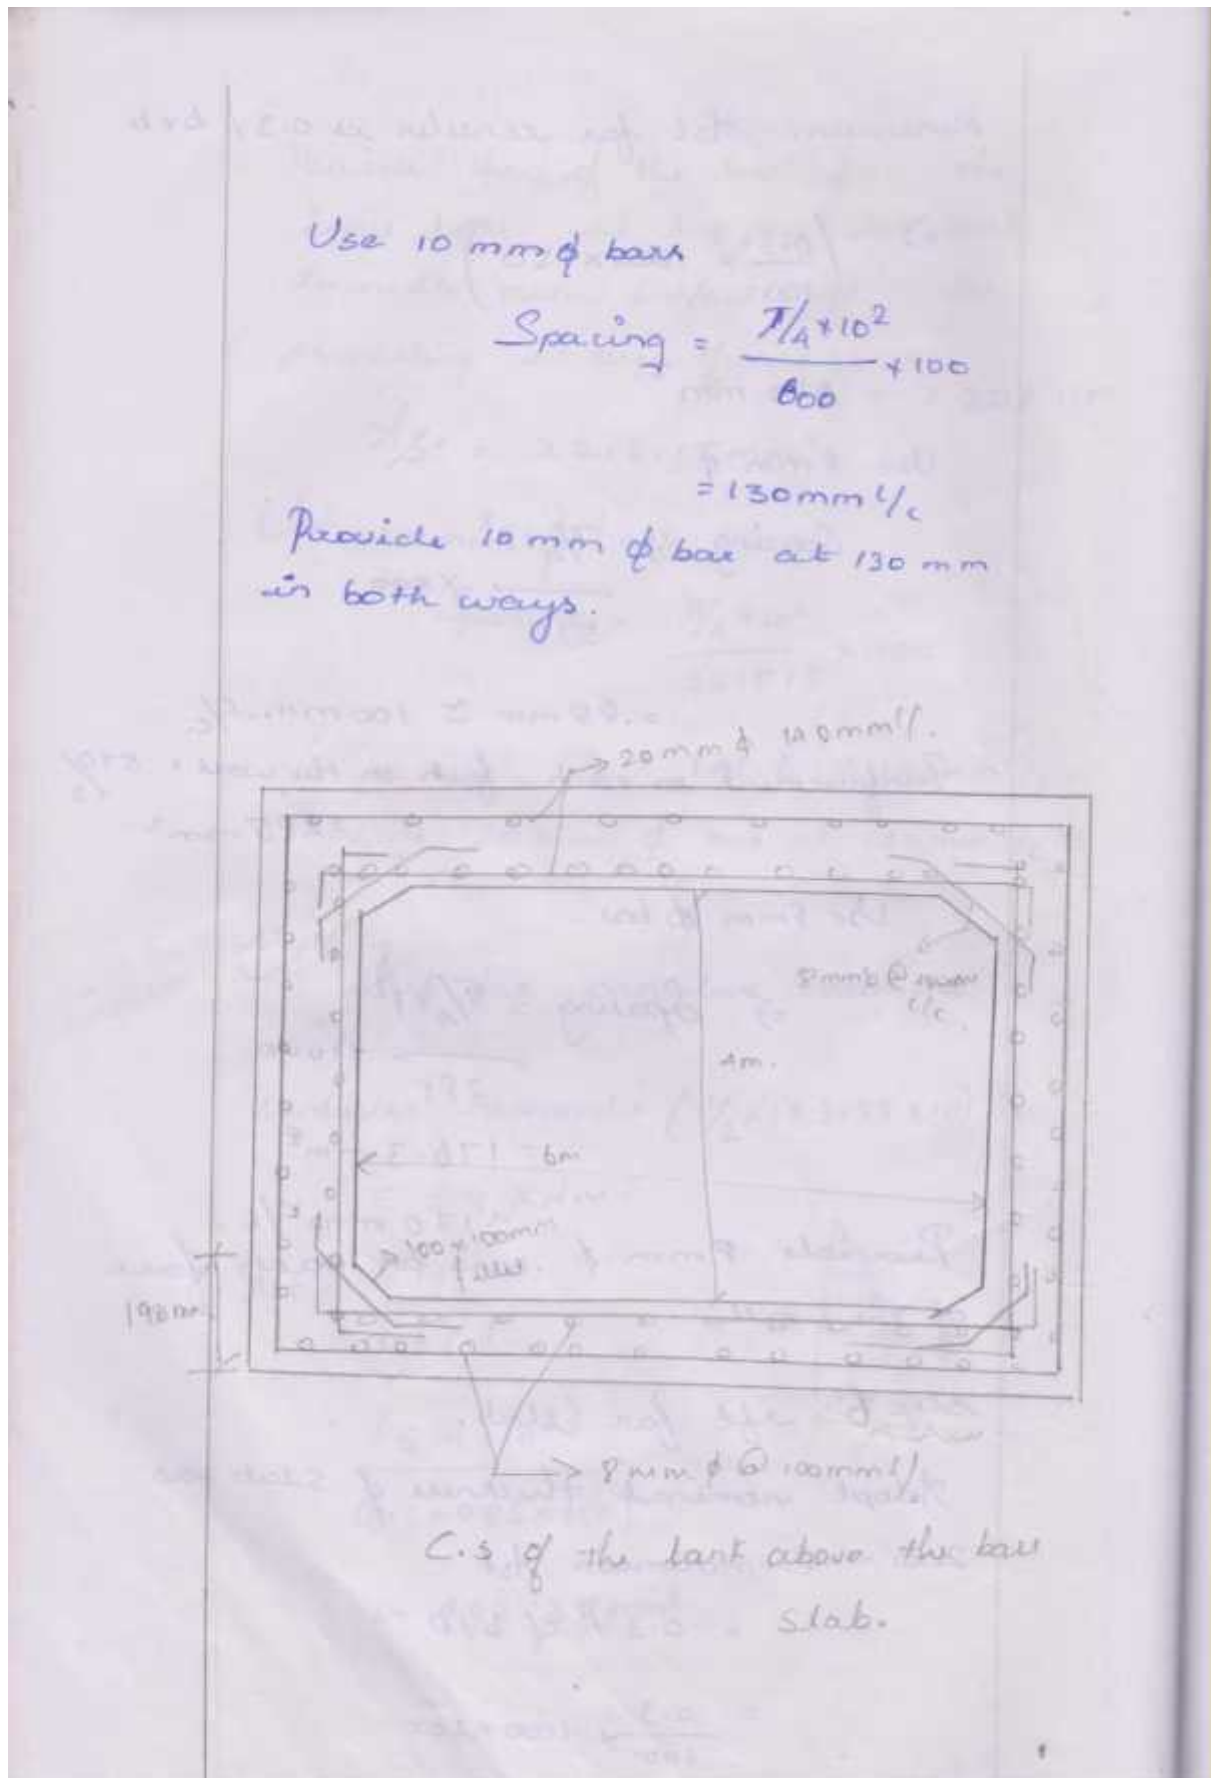 Use 10 mm ϕ bars
Spacing = π/4 × 10² / 600 × 100
= 130mm c/c
Provide 10 mm ϕ bar at 130 mm
in both ways.
20mm ϕ 140mm c/.
8mmϕ @
c/c.
4m.
6m
100 × 100mm
fillet
8mm ϕ @ 100mm c/.
C.s of the tank above the base
slab.